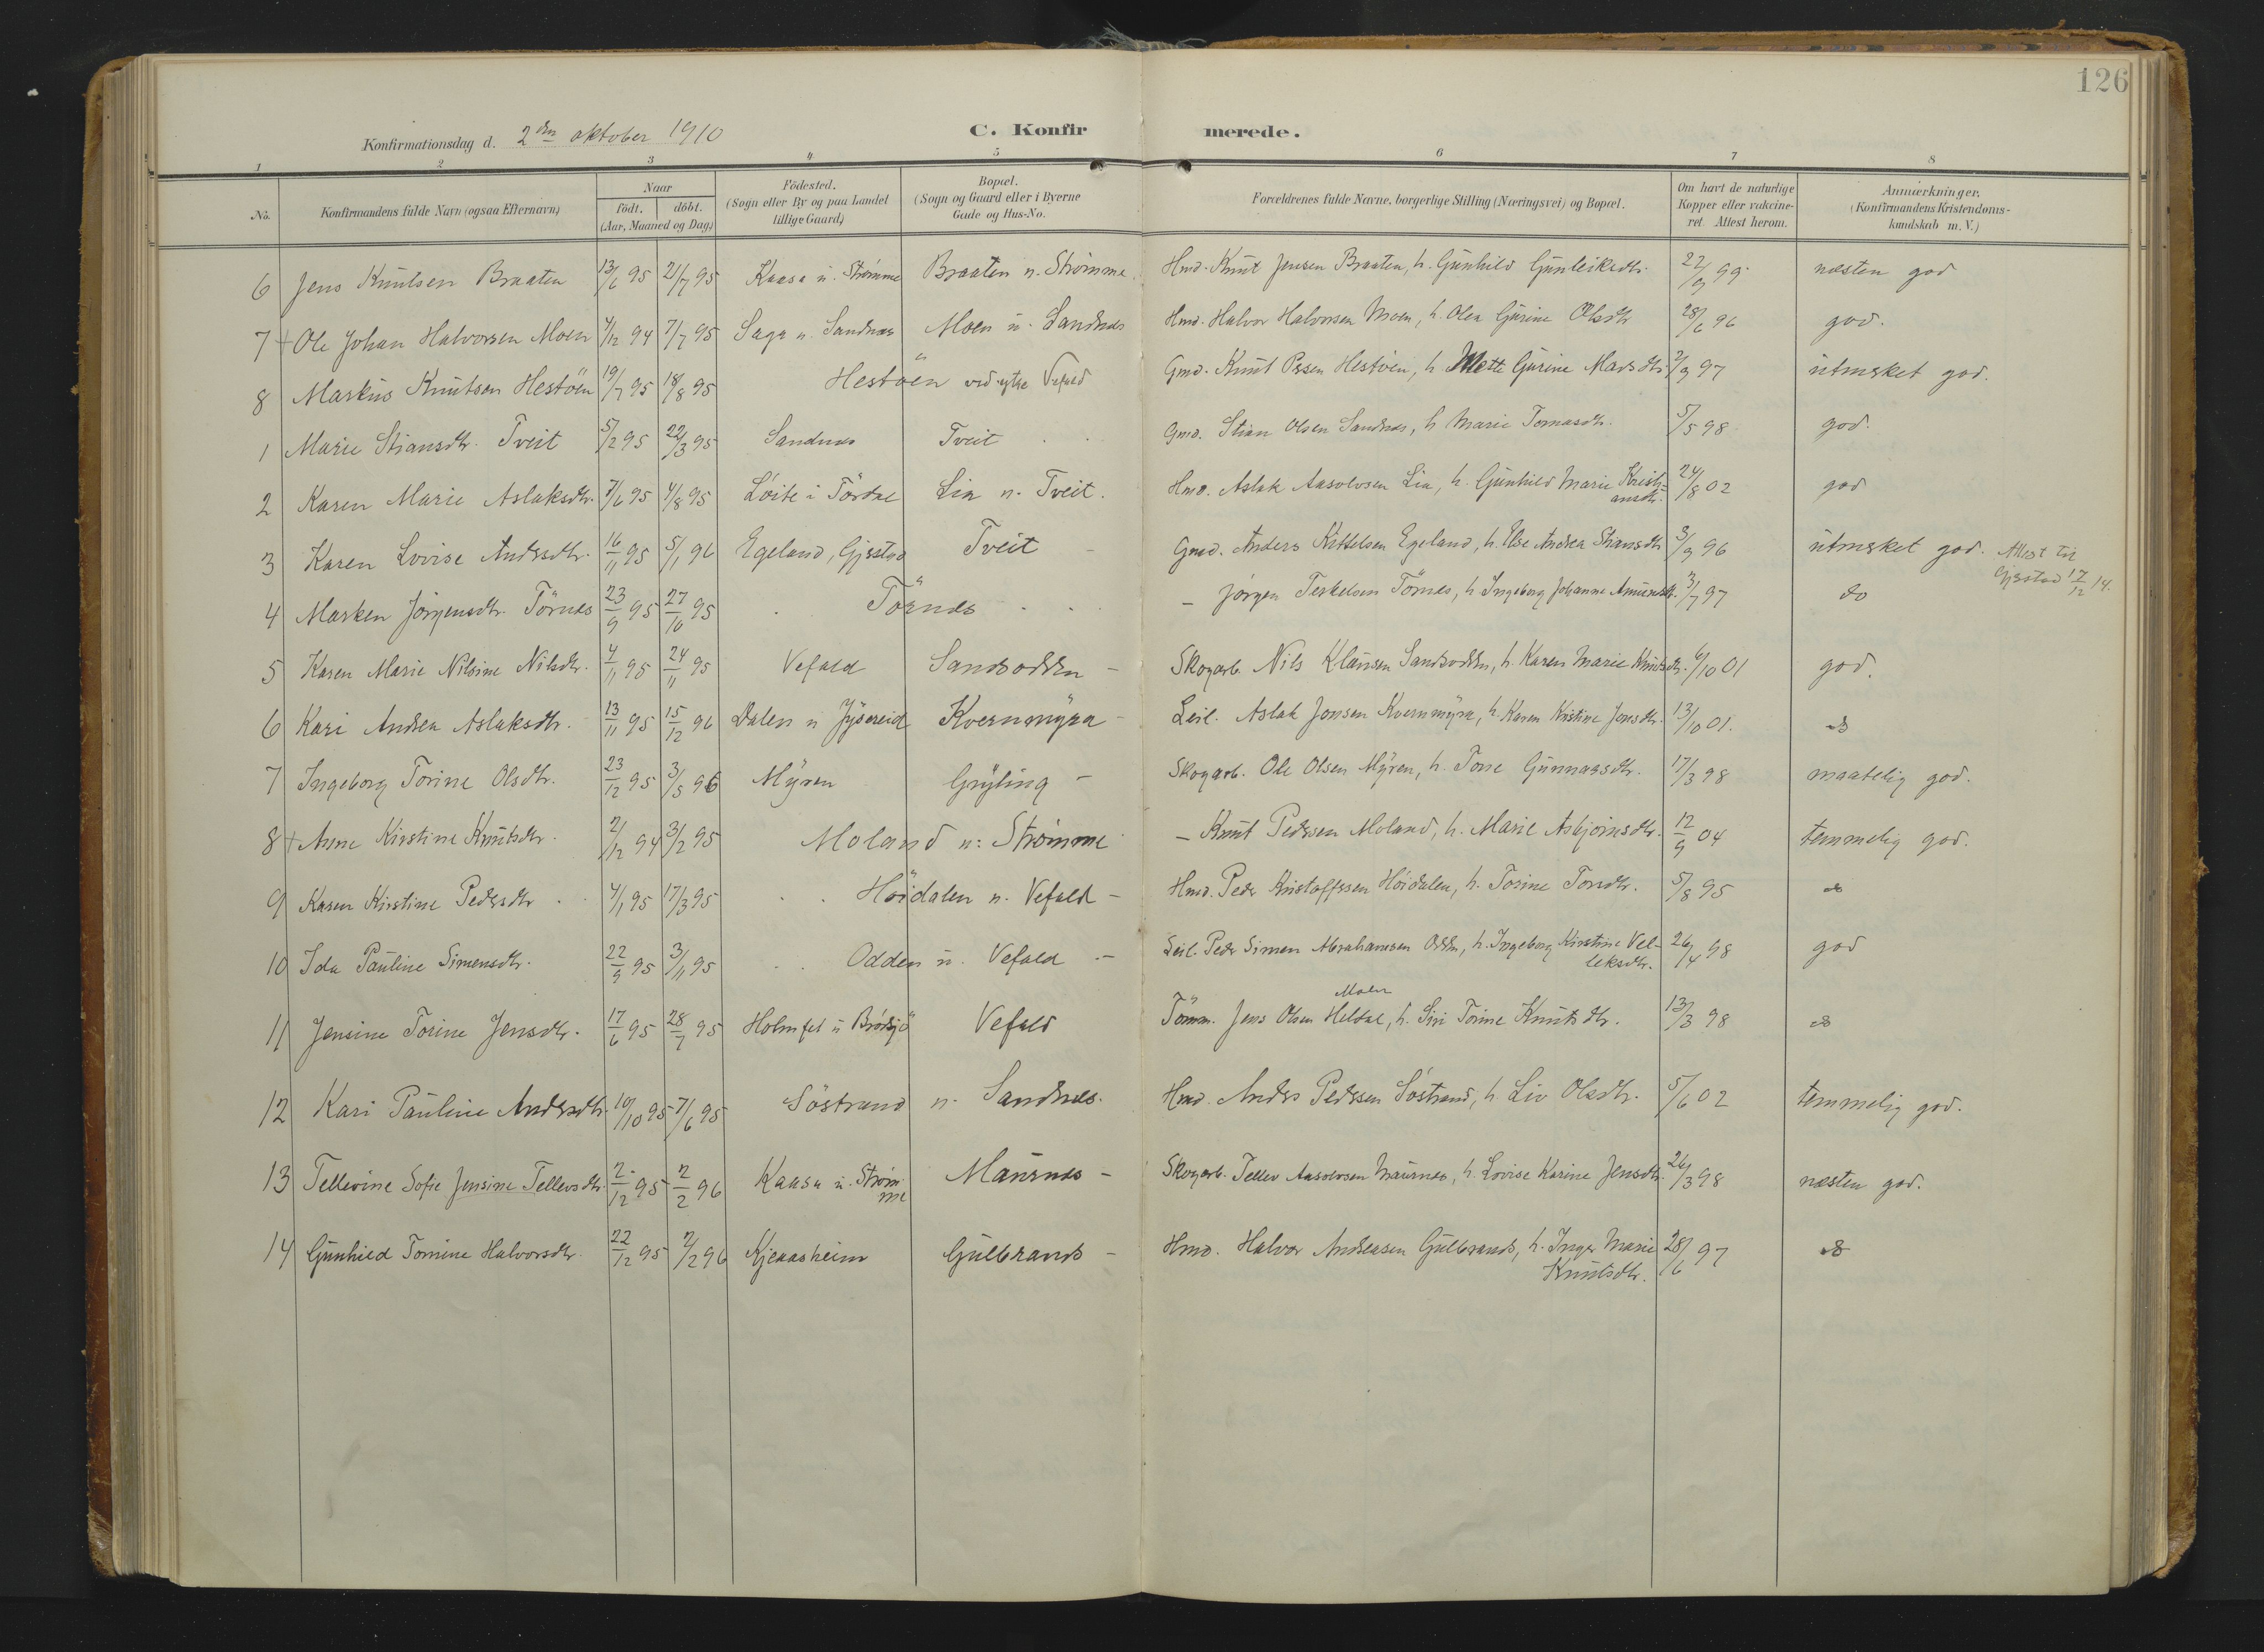 126
Konfirmationsdag d. 2den oktober 1910
C. Konfirmerede.
1 2 3 4 5 6 7 8
No. Konfirmandens fulde Navn (ogsaa Efternavn) Naar födt. döbt. (Aar, Maaned og Dag) Födested. (Sogn eller By og paa Landet tillige Gaard) Bopæl. (Sogn og Gaard eller i Byerne Gade og Hus-No. Forældrenes fulde Navne, borgerlige Stilling (Næringsvei) og Bopæl. Om havt de naturlige Kopper eller vakcineret. Attest herom. Anmærkninger. (Konfirmandens Kristendomskundskab m. V.)
6 Jens Knutsen Braaten 13/6 95 21/7 95 Kaasa u. Strömme Braaten u. Strømme Hmd. Knut Jensen Braaten, h. Gunhild Gunleiksdtr. 22/9 99 næsten god
7 + Ole Johan Halvorsen Moen 4/12 94 7/7 95 Saga u. Sandnæs Moen u. Sandnæs Hmd. Halvor Halvorsen Moen, h. Olea Gurine Olsdtr 28/6 96 god.
8 Markus Knutsen Hestöen 19/7 95 18/8 95 Hestöen ved ytre Vefald Gmd. Knut Ossen Hestöen, h. Mette Gurine Marsdtr. 2/9 97 utmerket god.
1 Marie Stiansdtr. Tveit 5/2 95 22/3 95 Sandnæs Tveit Gmd. Stian Olsen Sandnæs, h. Marie Tomasdtr. 5/5 98 god.
2 Karen Marie Aslaksdtr. 7/6 95 4/8 95 Löite i Tördal Lia u. Tveit. Hmd. Aslak Aasolvsen Lia, h. Gunhild Marie Kristiansdtr. 24/8 02 god
3 Karen Lovise Andersdtr. 16/11 95 5/1 96 Egeland, Gjerstad Tveit – Gmd. Anders Kittelsen Egeland, h. Else Andrea Stiansdtr 3/9 96 utmerket god. Attest til Gjerstad 17/12 14.
4 Marken Jörgensdtr. Törnes 23/9 95 27/10 95 Törnes – Jörgen Terkelsen Törnes, h. Ingeborg Johanne Amundsdtr. 3/7 97 do
5 Karen Marie Nilsine Nilsdtr. 4/11 95 24/11 95 Vefald Sandsodden – Skogarb. Nils Klausen Sandsodden, h. Karen Marie Knutsdtr. 6/10 01 god.
6 Kari Andrea Aslaksdtr. 13/11 95 15/12 96 Dalen u Jysereid Kvernmyra – Leil. Aslak Jonsen Kvernmyra, h. Karen Kristine Jonsdtr. 13/10 01. do
7 Ingeborg Torine Olsdtr. 23/12 95 3/5 96 Myren Gryting – Skogarb. Ole Olsen Myren, h. Tone Gunnarsdtr. 17/3 98 maatelig god.
8 + Anne Kirstine Knutsdtr. 2/12 94 3/2 95 Moland u. Strømme – Knut Pedersen Moland, h. Marie Asbjörnsdtr. 12/9 04 temmelig god.
9 Karen Kirstine Pedersdtr 4/1 95 17/3 95 Höidalen u. Vefald – Hmd. Peder Kristoffersen Höidalen, h. Torine Torsdtr. 5/8 95 do
10 Ida Pauline Simensdtr. 22/9 95 3/11 95 Odden u. Vefald – Leil. Peder Simen Abrahamsen Odden, h. Ingeborg Kirstine Velleksdtr. 26/4 98 god
11 Jensine Torine Jensdtr. 17/6 95 28/7 95 Holmfet u Brödsjö Vefald Tömm. Jens Olsen Heldal, Moen h. Siri Torine Knutsdtr. 13/3 98 do
12 Kari Pauline Andersdtr. 10/10 95 7/6 95 Söstrand u. Sandnæs. Hmd. Anders Pedersen Söstrand, h. Liv Olsdtr. 5/6 02 temmelig god.
13 Tellevine Sofie Jensine Tellevsdtr. 2/12 95 2/2 96 Kaasa u. Strömme Maurnes – Skogarb. Tellev Aasolvsen Maurnes, h. Lovise Karine Jensdtr. 26/3 98 næsten god.
14 Gunhild Tomine Halvorsdtr. 22/12 95 2/2 96 Kjeaasheim Gulbrands – Hmd. Halvor Andreasen Gulbrands, h. Inger Marie Knutsdtr. 28/6 97 do